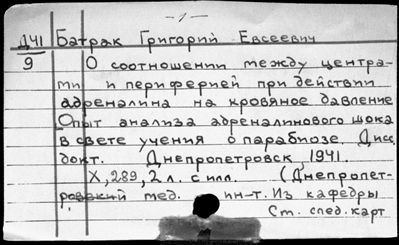 - 1 -
ДЧ1 Батрак Григорий Евсеевич
9 О соотношении между центра-
ми и периферией при действии
адреналина на кровяное давление
Опыт анализа адреналинового шока
в свете учения о парабиозе. Дисс.
докт. Днепропетровск, 1941.
X, 289, 2 л. с илл. (Днепропет-
ровский мед. ин-т. Из кафедры
Ст. спец. карт